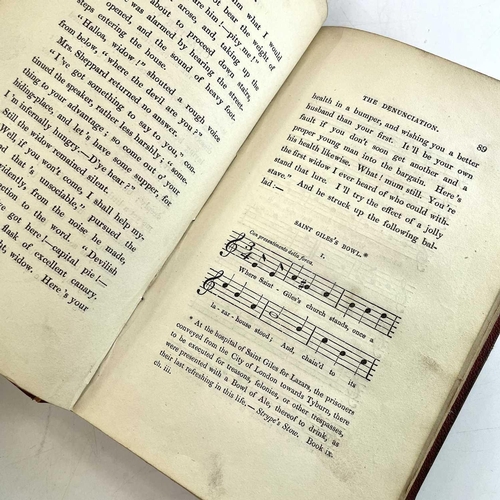 him what I would
not bear the weight of
tire him! pity me!"
about to arose, and, taking up the
to proceed down stairs,
was alarmed by hearing the street-
opened, and the sound of heavy foot-
steps entering the house.
"Halloa, widow!" shouted a rough voice
from below, "where the devil are you?"
Mrs. Sheppard returned no answer.
"I've got something to say to you," con-
tinued the speaker, rather less harshly; "some-
thing to your advantage; so come out o' your
hiding-place, and let's have some supper, for
I'm infernally hungry.—D'ye hear?"
Still the widow remained silent.
"Well, if you won't come, I shall help my-
and that's unsociable," pursued the
evidently, from the noise he made,
ction to the word. "Devilish
ve got here!—capital pie!—
flask of excellent canary.
ht, widow. Here's your
THE DENUNCIATION.
89
health in a bumper, and wishing you a better
husband than your first. It'll be your own
fault if you don't soon get another and a
proper young man into the bargain. Here's
his health likewise. What! mum still. You're
the first widow I ever heard of who could with-
stand that lure. I'll try the effect of a jolly
stave." And he struck up the following bal-
lad:—
SAINT GILES'S BOWL.*
I.
Con presentimento della forca.
Where Saint - Giles's church stands, once a
la - zar - house stood; And, chain'd to its
* At the hospital of Saint Giles for Lazars, the prisoners
conveyed from the City of London towards Tyburn, there
to be executed for treasons, felonies, or other trespasses,
were presented with a Bowl of Ale, thereof to drink, as
their last refreshing in this life.—Strype's Stow. Book ix.
ch. iii.